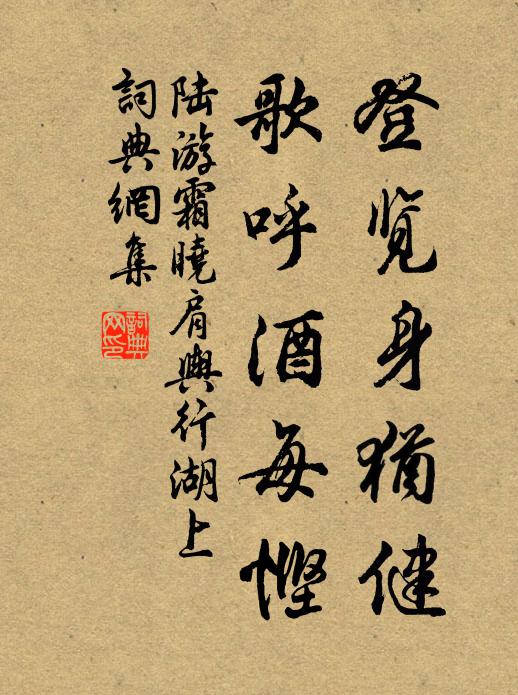 登览身犹健
歌呼酒每悭
陆游霜晓肩舆行湖上
詞典網集
詞典
网印